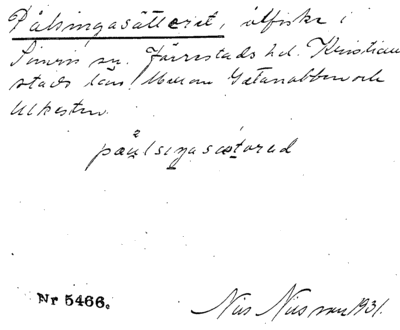 Pålsingasätteret, ålfiske i
Simris sn. Järrestads hd. Kristian
stads län. Mellan Gatanabben och
Ulkesten.
påulsiŋasætərəd
Nr 5466.
Nils Nilsson 1931.